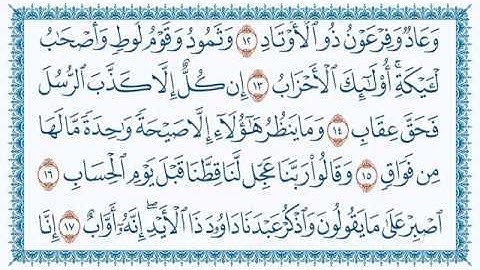 وَعَادٌ وَفِرْعَوْنُ ذُو ٱلْأَوْتَادِ ١٢ وَثَمُودُ وَقَوْمُ لُوطٍ وَأَصْحَٰبُ
لْـَٔيْكَةِ ۚ أُو۟لَٰٓئِكَ ٱلْأَحْزَابُ ١٣ إِن كُلٌّ إِلَّا كَذَّبَ ٱلرُّسُلَ
فَحَقَّ عِقَابِ ١٤ وَمَا يَنظُرُ هَٰٓؤُلَآءِ إِلَّا صَيْحَةً وَٰحِدَةً مَّا لَهَا
مِن فَوَاقٍ ١٥ وَقَالُوا۟ رَبَّنَا عَجِّل لَّنَا قِطَّنَا قَبْلَ يَوْمِ ٱلْحِسَابِ ١٦
ٱصْبِرْ عَلَىٰ مَا يَقُولُونَ وَٱذْكُرْ عَبْدَنَا دَاوُۥدَ ذَا ٱلْأَيْدِ ۖ إِنَّهُۥٓ أَوَّابٌ ١٧ إِنَّا